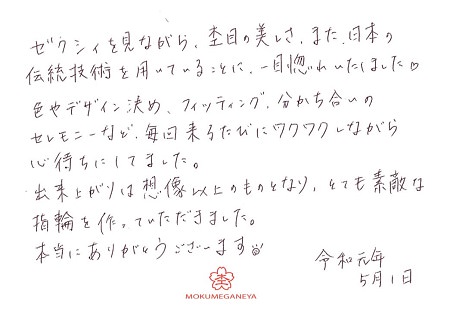 ゼクシィを見ながら、杢目の美しさ、また、日本の
伝統技術を用いていることに、一目惚れいたしました♡
色やデザイン決め、フィッティング、分かち合いの
セレモニーなど、毎回来るたびにワクワクしながら
心待ちにしてました。
出来上がりは想像以上のものとなり、とても素敵な
指輪を作っていただきました。
本当にありがとうございます
令和元年
5月1日
杢
MOKUMEGANEYA